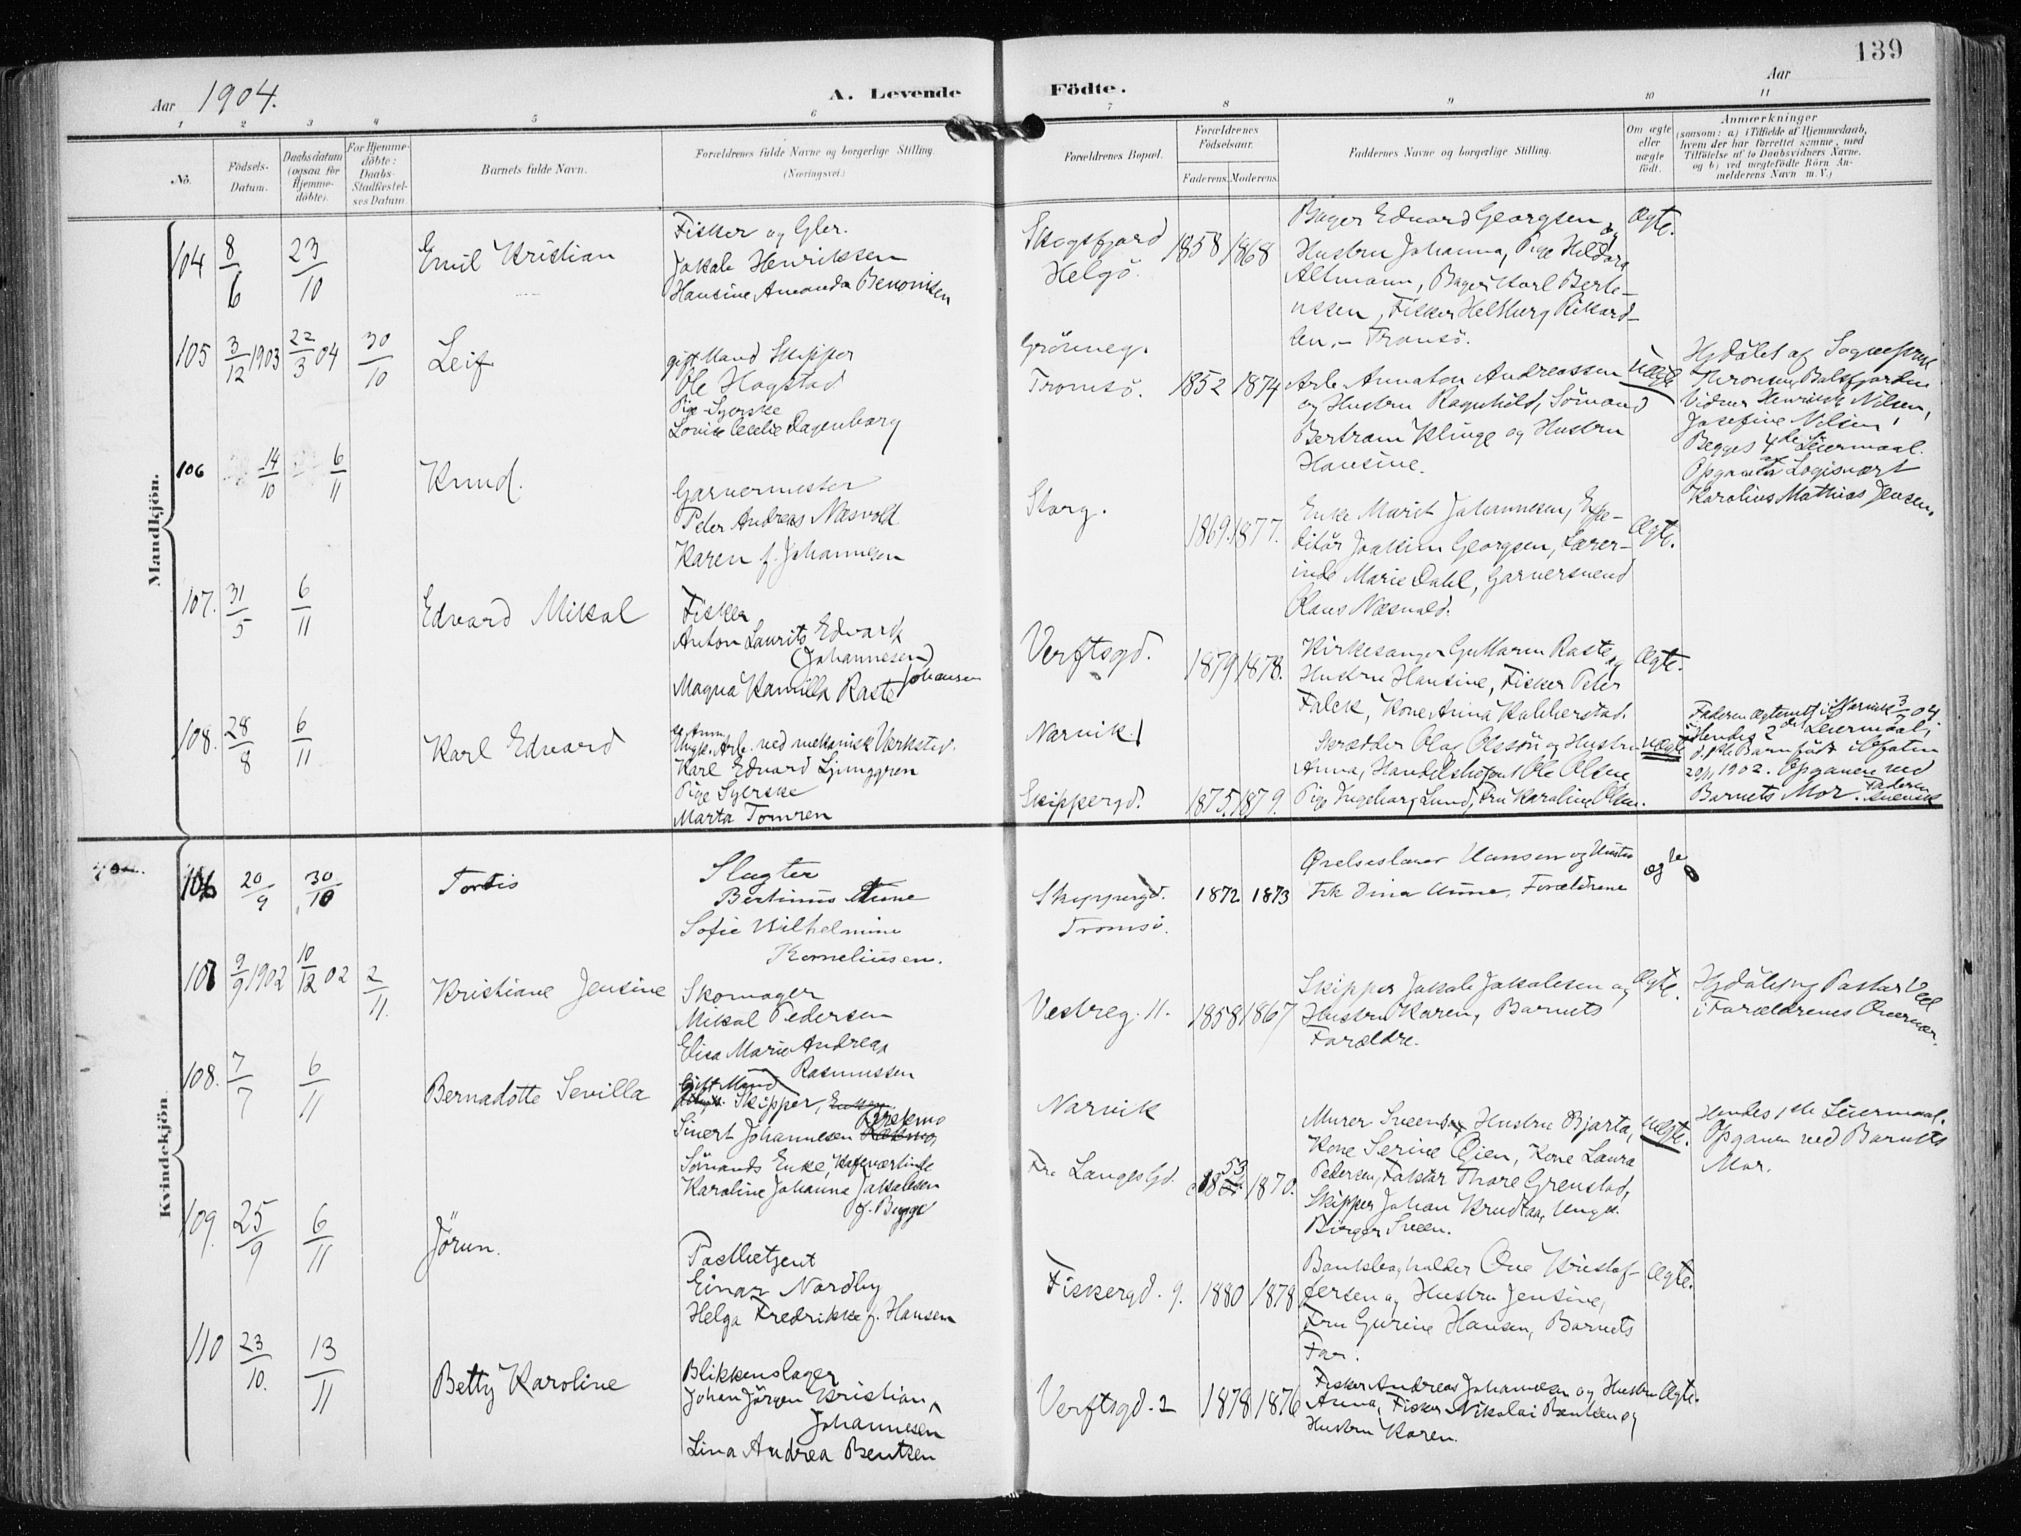 139
Aar 1904.
A. Levende Födte.
Aar
1 2 3 4 5 6 7 8 9 10 11
No.
Födsels-
Datum.
Daabsdatum
(ogsaa for
Hjemme-
döbte).
For Hjemme-
döbte:
Daabs-
Stadfæstel-
ses Datum.
Barnets fulde Navn.
Forældrenes fulde Navne og borgerlige Stilling.
(Næringsvei.)
Forældrenes Bopæl.
Forældrenes
Födselsaar.
Faderens. Moderens.
Faddernes Navne og borgerlige Stilling.
Om ægte
eller
uægte
födt.
Anmærkninger
(saasom: a) i Tilfælde af Hjemmedaab,
hvem der har forrettet samme, med
Tilföielse af to Daabsvidners Navne.
og b) ved uægtefödte Börn An-
melderens Navn m. V.)
Mandkjön.
104 8/6 23/10
Emil Kristian
Fisker og
Jakob Henriksen
Hansine Amanda Benonisen
Skogsfjord
Helgö.
1858 1868
Bager Edvard Georgsen og
Hustru Johanna, Pige Hildora
Altmann, Bager Karl Bert-
nssen, Fisker Rikard-
sen. - Tromsö.
Ægte.
105 3/12 1903 22/3 04 30/10
Leif
gift Mand Skipper
Ole Hogstad
Pige Syerske
Lovise Cecelie Dagenborg
Grönneg.
Tromsö.
1852 1874
Arb. Annaton Andreassen
og Hustru Ragnhild, Sömand
Bertram Klinge og Hustru
Hansine.
Uægte
Hjdöbt af Sognepræst
Balsfjorden
Vidner Henrik Nilsen,
Josefine Nilsen,
Begges 4de Leiermaal.
Opgaven Logisvært
Karolius Mathias Jensen.
106 14/10 6/11
Knud.
Garvermester
Peter Andreas Næsvold
Karen f. Johannesen
Storg.
1869. 1877.
Enke Marit Johannesen, Expe-
ditör Joakim Georgsen, Lærer-
inde Marie Dahl, Garversvend
Claus Næsvold.
Ægte.
107. 31/5 6/11
Edvard Mikal
Fisker
Anton Laurits Edvard
(Johannesen)
Johansen
Magna Kamilla Raste
Verftsgd.
1879 1878.
Kirkesanger Raste og
Hustru Hansine, Fisker Peter
Falck, Kone Anna Kolherstad.
Ægte.
108. 28/8 6/11
Karl Edvard
Ungk. Arb. ved mekanisk Verksted.
Karl Edvard Ljunggren
Pige Syerske
Marta Tomren
Narvik
Skippergd.
1875. 1879.
Skrædder Olaf Olssön og Hustru
Anna, Handelsbetjent Ole Olsen
Pige Ingeborg Lund, Fru Karoline Olsen.
uægte
Faderen ægteviet i Narvik 3/7 04
Hendes 2det Leiermaal;
1ste Barn födt i Ofoten
1902. Opgaven ved
Barnets Mor. Faderen
svensk
Kvindekjön.
106 20/9 30/10
Tordis
Slagter
Bertinus Aune
Sofie Wilhelmine
Korneliussen.
Skippergd.
Tromsö.
1872 1873
Övelseslærer Hansen og Hustru
Frk Dina Aune, Forældrene
ægte
107 9/9 1902 10/12 02 2/11.
Kristiane Jensine
Skomager
Mikal Pedersen
Elisa Marie Andrea
Rasmussen
Vestreg. 11.
1858 1867
Skipper Jakob Jakobsen og
Hustru Karen, Barnets
Forældre.
Ægte.
Hjdöbt Pastor
i Forældrenes Overvær.
108. 7/7 6/11
Bernadotte Sevilla
Gift Mand
Skipper,
Sivert Johannesen
Sömands Enke, Kafeværtinde
Karoline Johanna Jakobsen
f. Bugge
Narvik
Fr. Langes Gd.
1853 1870.
Murer Hustru Bjarta,
Kone Serine Öien, Kone Laura
Pedersen, Faktor Thore Grenstad,
Skipper Johan Ungk.
Birger Sveen.
Uægte.
Hendes 1ste Leiermaal.
Opgaven ved Barnets
Mor.
109. 25/9 6/11
Jörun.
Postbetjent
Einar Nordby
Helga Fredrikke f. Hansen
Fiskergd. 9.
1880 1878
Bankbogholder Ove Kristof-
fersen og Hustru Jensine,
Fru Gurine Hansen, Barnets
Far.
Ægte.
110 23/10. 13/11
Betty Karoline
Blikkenslager
Johan Jörgen Kristian
Johannesen
Lina Andrea Bentsen
Verftsgd. 2
1878 1876
Fisker Andreas Johannesen og Hustru
Anna, Fisker Nikolai Bentsen og
Hustru Karen.
Ægte.